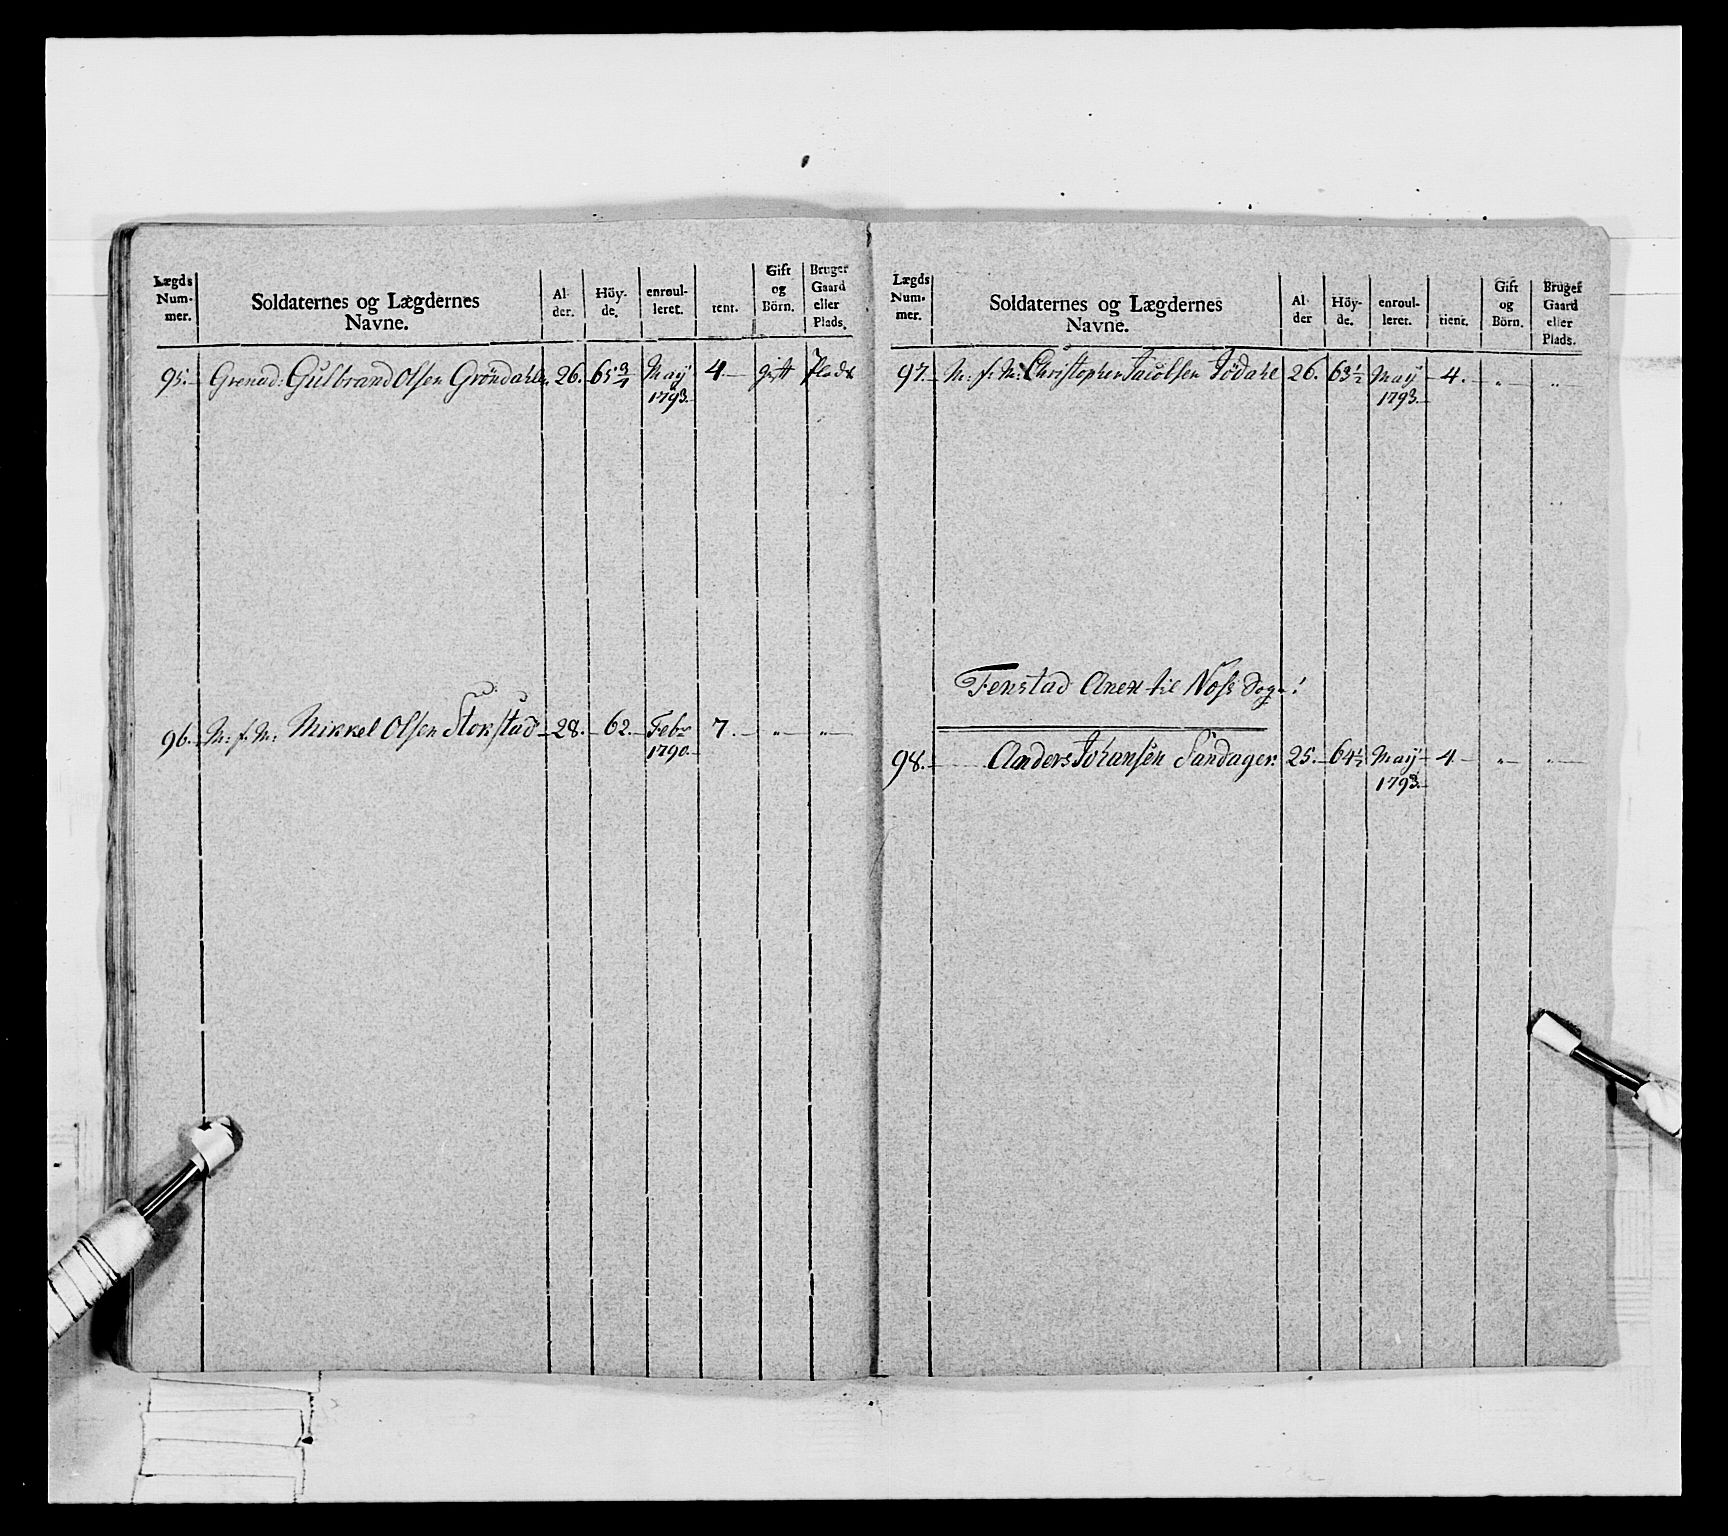 Lægds Num- mer.
Soldaternes og Lægdernes Navne.
Al- der.
Höy- de.
enroul- leret.
tient.
Gift og Börn.
Bruger Gaard eller Plads.
95. Grenad: Gulbrand Olsen Gröndahl 26. 65 3/4 May 4. gift Plads
1793.
96. M: f: M: Mikkel Olsen Stokstad 28. 62. Febr 7. " "
1790.
Lægds Num- mer.
Soldaternes og Lægdernes Navne.
Al- der
Höy- de.
enroul- leret.
tient.
Gift og Börn.
Bruger Gaard eller Plads.
97. M: f: M: Christopher Jacobsen Jödahl 26. 63 1/2 May 4. " "
1793.
Fenstad Anex til Næss Sogn!
98. Anders Johansen Sandager 25. 64 1/2 May 4. " "
1793.